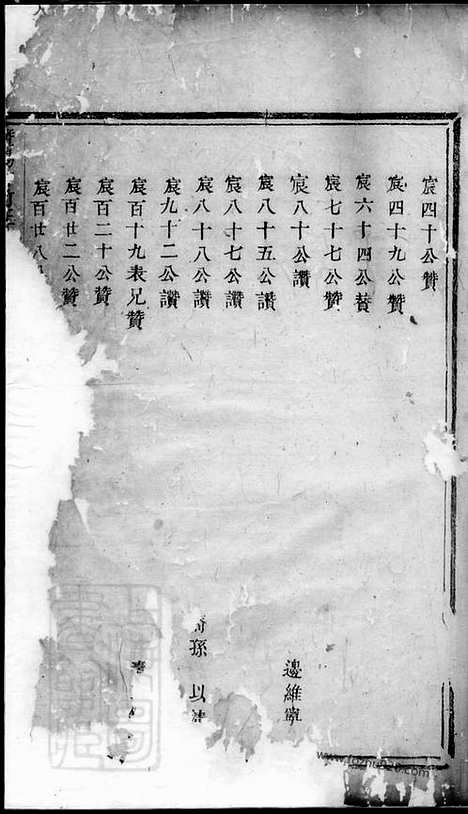 宸四十公贊
宸四十九公贊
宸六十四公贊
宸七十七公贊
宸八十公讚
邊維寧
宸八十五公讚
宸八十七公讚
宸八十八公讚
孫以
宸九十二公讚
宸百十九表兄贊
宸百二十公贊
宸百廿二公贊
宸百廿八